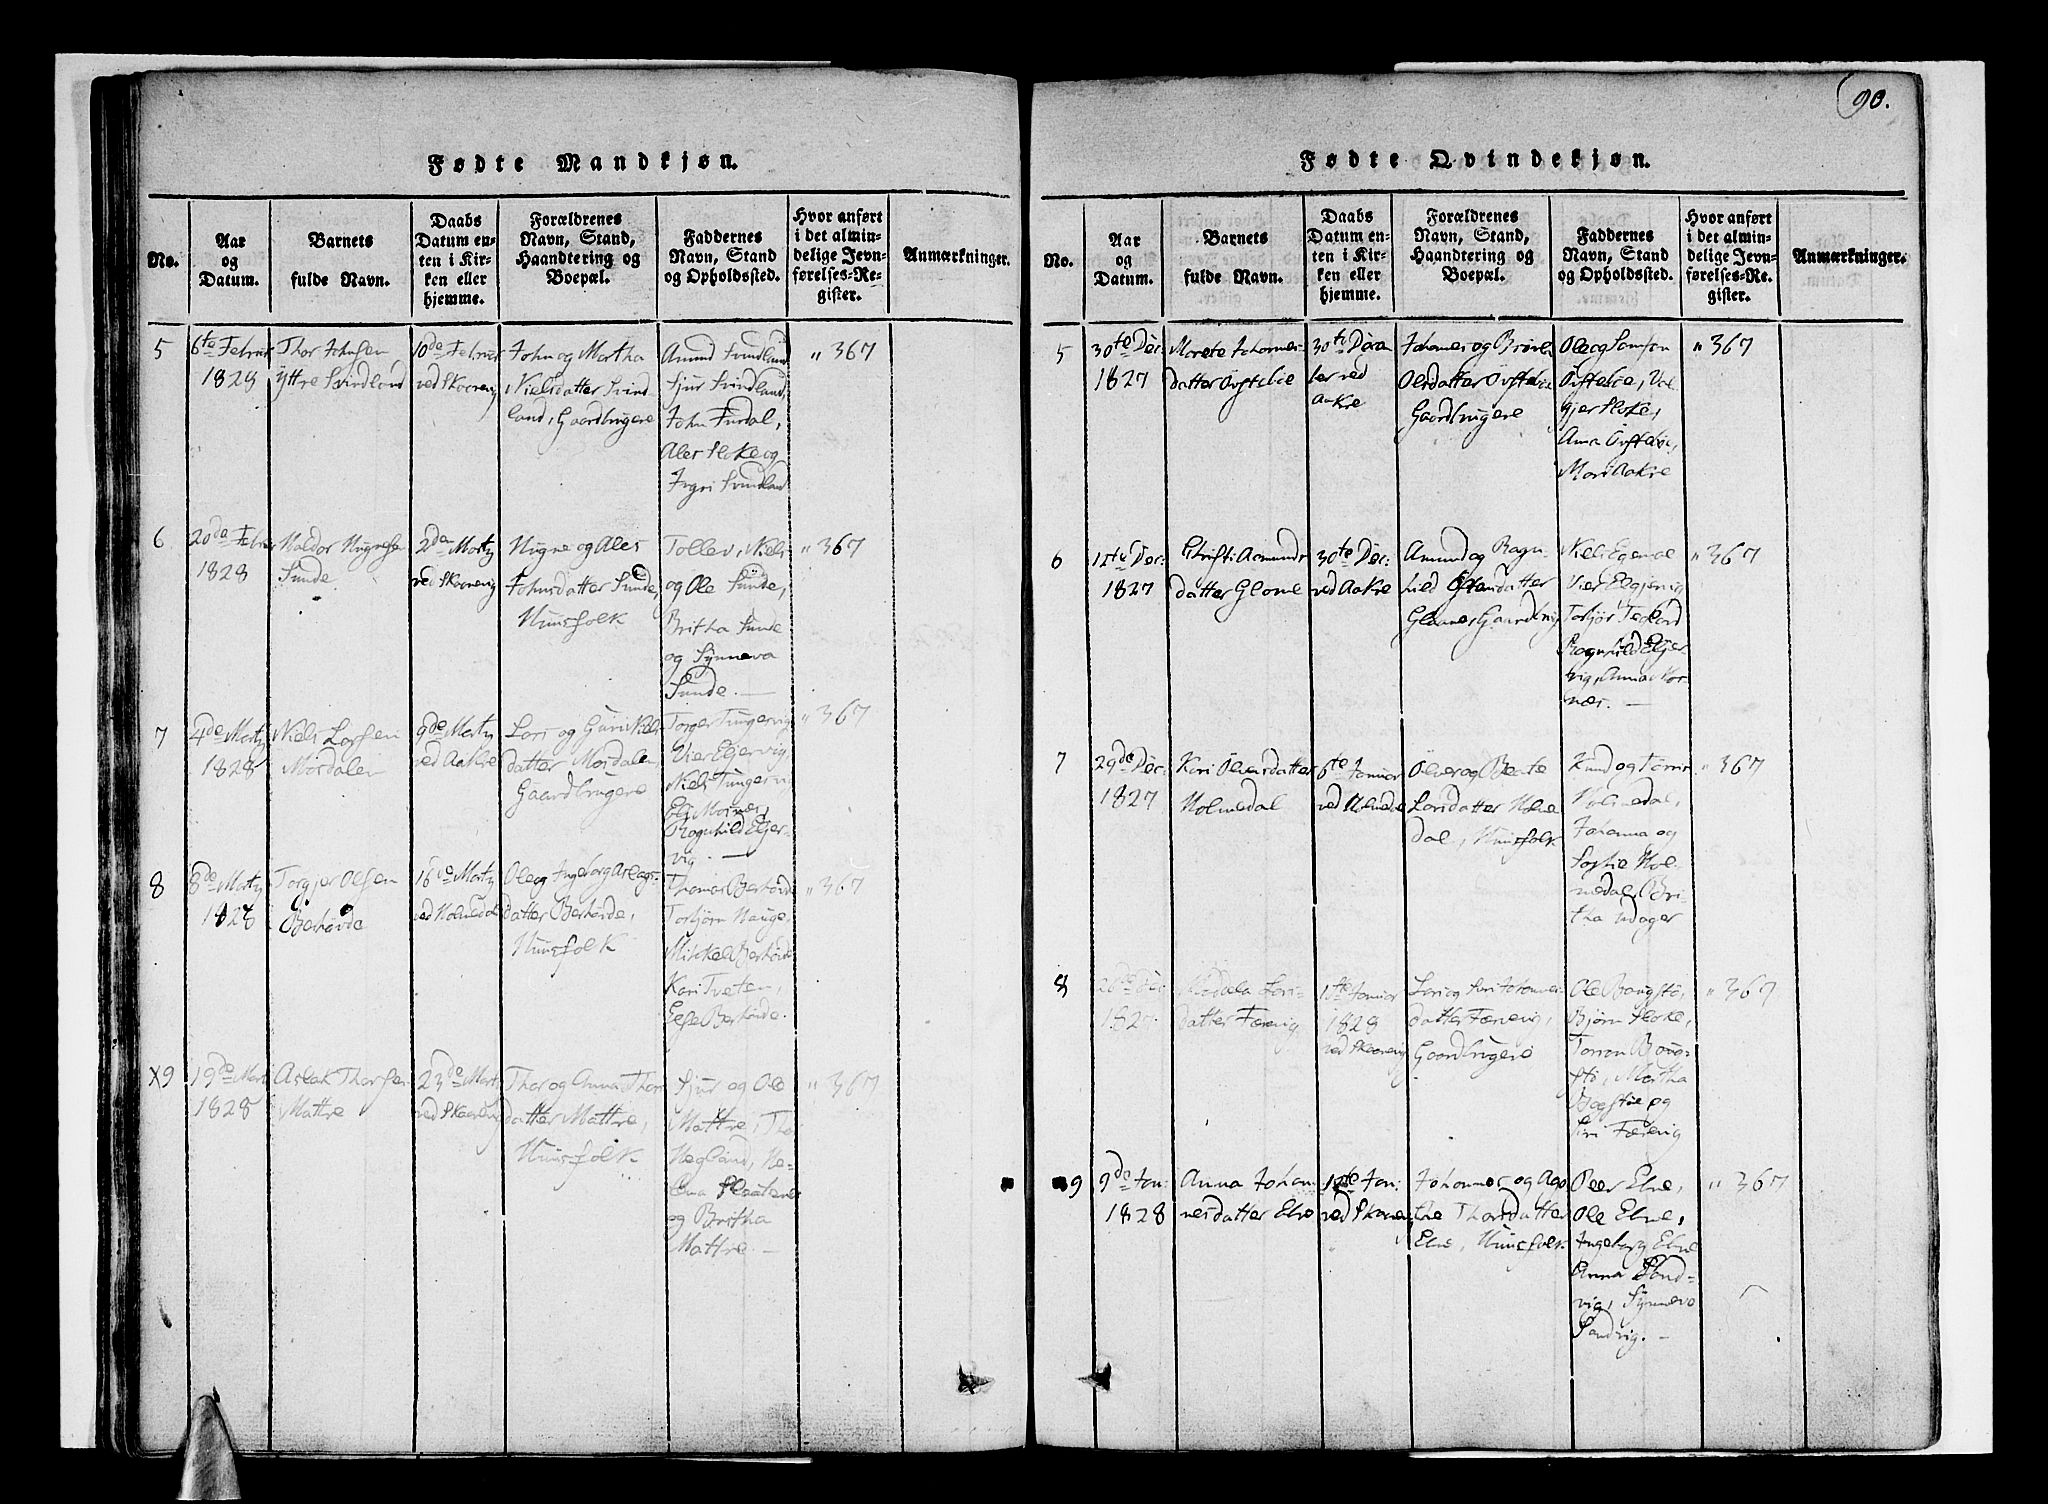 90.
Fødte Mandkjøn.
No.
Aar
og
Datum.
Barnets
fulde Navn.
Daabs
Datum en-
ten i Kir-
ken eller
hjemme.
Forældrenes
Navn, Stand,
Haandtering og
Boepæl.
Faddernes
Navn, Stand
og Opholdssted.
Hvor anført
i det almin-
delige Jevn-
førelses-Re-
gister.
Anmærkninger.
5
6te Februar
1828
Thor Johnsen
Yttre Svindland
10de Februar
ved Skaanevig
John og Martha
Nielsdatter Svind
land, Gaardbrugere
Amund Svindland
Sjur Svindland,
John Furdal,
Ales Floke og
Ingri Svindland
" 367
6
20de Febru
1828
Haldor
Sunde
2den Marty
ved Skaanevig
og Ales
Johnsdatter Sunde,
Huusfolk
Tollev, Niels
og Ole Sunde,
Britha Sunde
og Synneva
Sunde. —
" 367
7
4de Marty
1828
Niels Larsen
Mordalen
9de Marty
ved Aakre
Lars og Guri Niels
datter Mordalen,
Gaardbrugere
Torger Tungesvig
Vier Eljervig,
Niels Tungesv
Ragnhild Eljer-
vig. —
" 367
8
8de Marty
1828
Torgjer Olsen
Berhövde
16de Marty
ved Holmedal
Ole og Ingeborg Aslags-
datter Berhövde,
Huusfolk
Thomas Berhövde
Torbjörn Hauge,
Mikkel Berhövd
Kari Tveten,
Else Berhövde.
" 367
X9
19de Mart
1828
Aslak Thorsen
Mattre
23de Mart
ved Skaanevig
Thor og Anna Thors
datter Mattre,
Huusfolk
Sjur og Ole
Mattre, Tho
Hegland, He-
lena
og Britha
Mattre —
" 367
Fødte Qvindekjøn.
No.
Aar
og
Datum.
Barnets
fulde Navn.
Daabs
Datum en-
ten i Kir-
ken eller
hjemme.
Forældrenes
Navn, Stand,
Haandtering og
Boepæl.
Faddernes
Navn, Stand
og Opholdssted.
Hvor anført
i det almin-
delige Jevn-
førelses-Re-
gister.
Anmærkninger.
5
30te Dec:
1827
Marete Johannes-
datter
30te Decem
ber ved
Aakre
Johannes og
Olsdatter
Gaardbrugere
Ole og Samson
gjer Floke,
Anna
Mari Aakre
" 367
6
Dec:
1827
Christi Aamunds
datter
30te Dec:
ved Aakre
Amund og Ragn-
hild
Niels
Vier Eljervig
Torbjör
Ragnhild Eljer-
vig, Anna Kor-
næs. —
" 367
7
29de Dec:
1827
Kari Ölversdatter
Holmedal
6te Januar
ved Holmedal
Ölver og Beate
Larsdatter Holme
dal, Huusfolk
Knud og
Holmedal,
Johanna og
Sophie Hol-
medal, Bri-
tha Udager
" 367
8
26de Dec
1827
Lars-
datter Færevig
1ste Januar
1828
ved Skaanevig
Lars og Siri Johannes-
datter Færevig,
Gaardbrugere
Ole
Bjørn Floke,
Martha
og
Siri Færevig
" 367
9
9de Jan:
1828
Anna Johan
nesdatter Elne
Jan:
ved Skaanev
Johannes og Aga
the Thorsdatter
Elne, Huusfolk
Peer Elne,
Ole Elne,
Ingeborg Elne
Anna Sand-
vig, Synneve
Sandvig. —
" 367